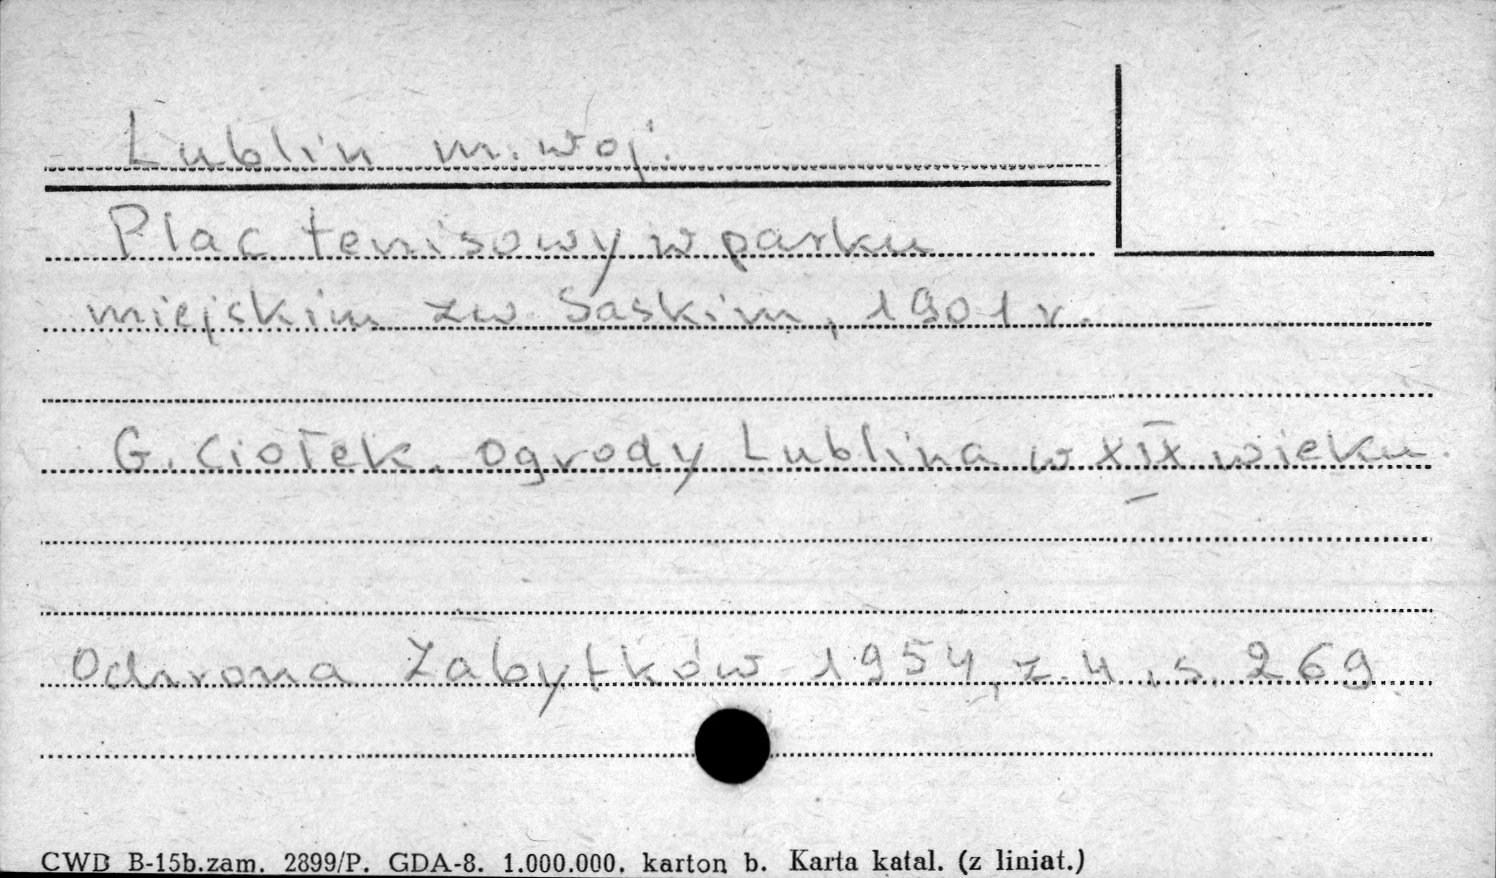 Lublin m. woj.
Plac tenisowy w parku
miejskim zw. Saskim, 1901 r.
G. Ciołek. Ogrody Lublina w XIX wieku.
Ochrona Zabytków 1954, z. 4, s. 269.
CWD B-15b.zam. 2899/P. GDA-8. 1.000.000. karton b. Karta katal. (z liniat.)